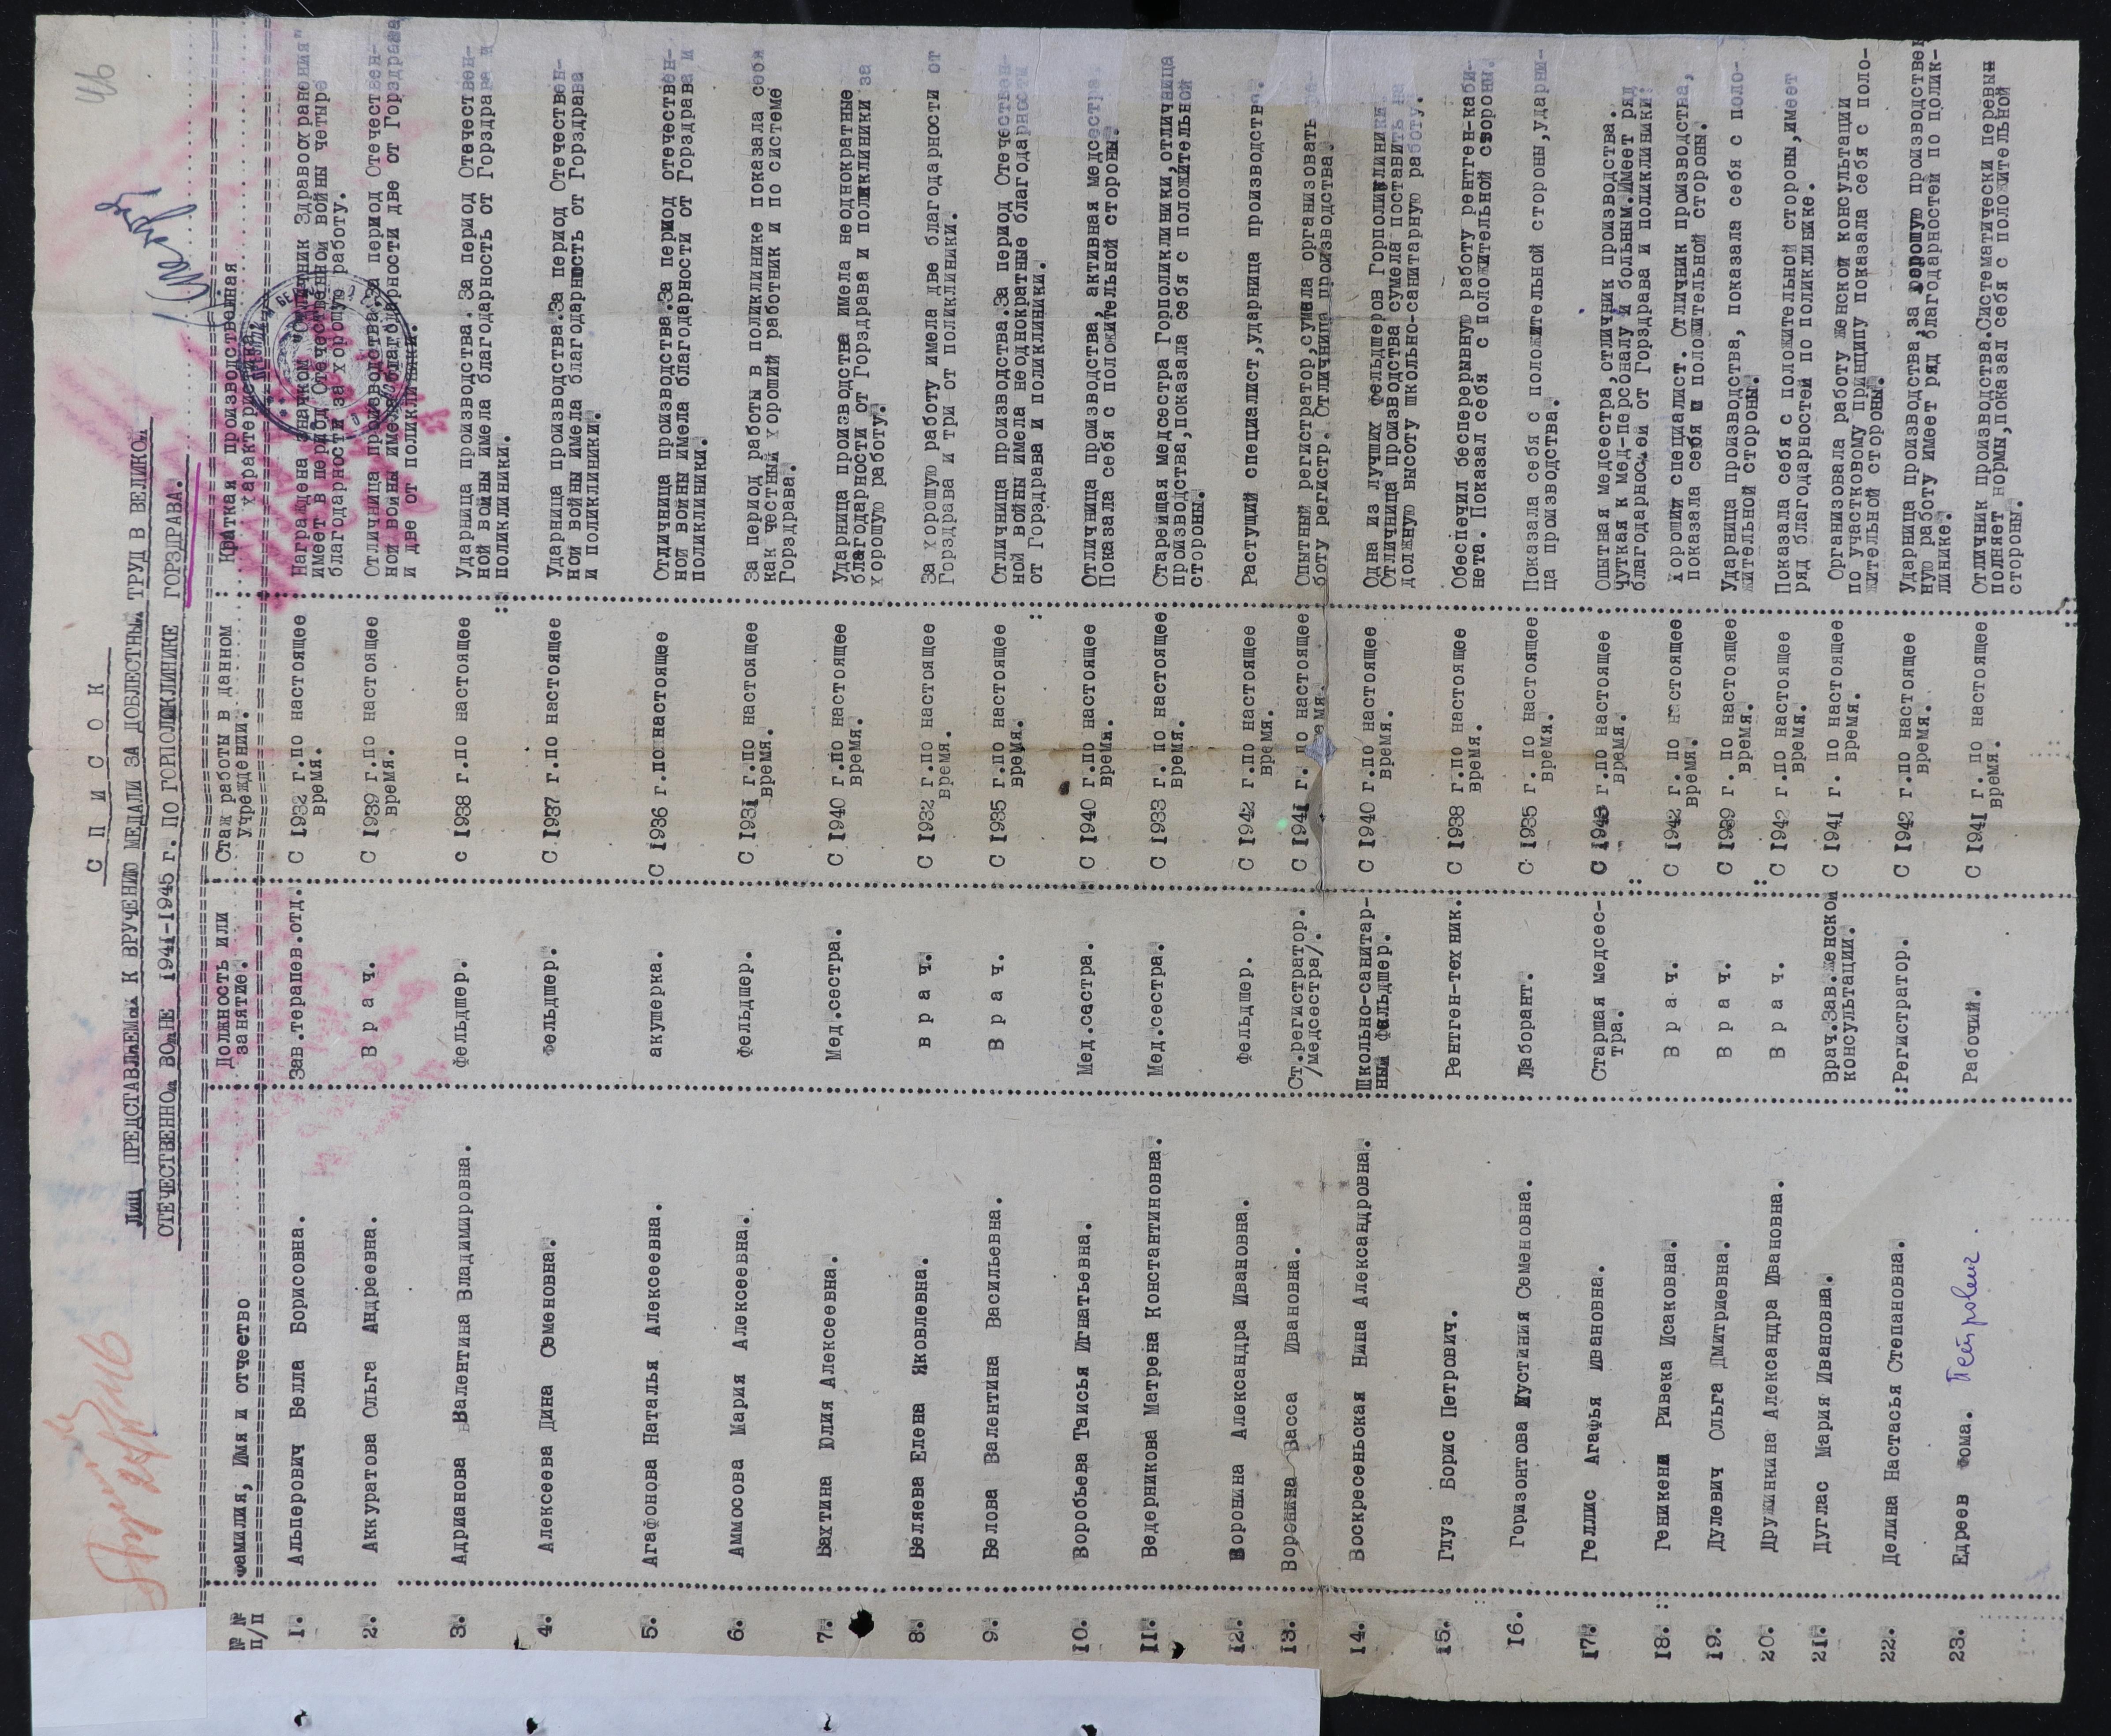 46
С П И С О К
ЛИЦ ПРЕДСТАВЛЯЕМЫХ К ВРУЧЕНИЮ МЕДАЛИ ЗА ДОБЛЕСТНЫЙ ТРУД В ВЕЛИКОЙ
ОТЕЧЕСТВЕННОЙ ВОЙНЕ 1941-1945 г. ПО ГОРПОЛИКЛИНИКЕ ГОРЗДРАВА.
№ № п/п Фамилия, Имя и отчество Должность или занятие. Стаж работы в данном учреждении. Краткая производственная характеристика.
1. Альперович Белла Борисовна. Зав.терапев.отд. С 1932 г.по настоящее время. Награждена значком "Отличник Здравоохранения"
имеет в период Отечественной войны четыре
благодарности за хорошую работу.
2. Аккуратова Ольга Андреевна. В р а ч. С 1939 г.по настоящее время. Отличница производства.За период Отечествен-
ной войны имела благодарности две от Горздрава
и две от поликлиники.
3. Адрианова Валентина Владимировна. Фельдшер. с 1938 г.по настоящее Ударница производства. За период Отечествен-
ной войны имела благодарность от Горздрава и
поликлиники.
4. Алексеева Дина Семеновна. Фельдшер. С 1937 г.по настоящее Ударница производства.За период Отечествен-
ной войны имела благодарность от Горздрава
и поликлиники.
5. Агафонова Наталья Алексеевна. акушерка. С 1936 г.по настоящее Отличница производства.За период отечествен-
ной войны имела благодарности от Горздрава и
поликлиники.
6. Аммосова Мария Алексеевна. Фельдшер. С 1931 г.по настоящее время. За период работы в поликлинике показала себя
как честный хороший работник и по системе
Горздрава.
7. Бахтина Юлия Алексеевна. Мед.сестра. С 1940 г.по настоящее время. Ударница производства имела неоднократные
благодарности от Горздрава и поликлиники за
хорошую работу.
8. Беляева Елена Яковлевна. в р а ч. С 1932 г.по настоящее время. За хорошую работу имела две благодарности от
Горздрава и три от поликлиники.
9. Белова Валентина Васильевна. В р а ч. С 1935 г.по настоящее время. Отличница производства.За период Отечествен-
ной войны имела неоднократные благодарности
от Горздрава и поликлиники.
10. Воробьева Таисья Игнатьевна. Мед.сестра. С 1940 г.по настоящее время. Отличница производства, активная медсестра.
Показала себя с положительной стороны.
11. Ведерникова Матрена Константиновна. Мед.сестра. С 1933 г. по настоящее время. Старейшая медсестра Горполиклиники,отличница
производства,показала себя с положительной
стороны.
12. Воронина Александра Ивановна. Фельдшер. С 1942 г.по настоящее время. Растущий специалист,ударница производства.
13. Воронина Васса Ивановна. Ст.регистратор. /медсестра/. С 1941 г. по настоящее время. Опытный регистратор,сумела организовать ра-
боту регистр. Отличница производства.
14. Воскресеньская Нина Александровна. Школьно-санитар-ный фельдшер. С 1940 г.по настоящее время. Одна из лучших фельдшеров Горполиклиники.
Отличница производства сумела поставить на
должную высоту школьно-санитарную работу.
15. Глуз Борис Петрович. Рентген-техник. С 1938 г.по настоящее время. Обеспечил бесперерывную работу рентген-каби-
нета. Показал себя с положительной стороны.
16. Горизонтова Иустиния Семеновна. Лаборант. С 1935 г. по настоящее время. Показала себя с положительной стороны,ударни-
ца производства.
17. Геллис Агафья Ивановна. Старшая медсес-тра. С 1943 г.по настоящее время. Опытная медсестра,отличник производства.
Чуткая к мед-персоналу и больным.Имеет ряд
благодарностей от Горздрава и поликлиники.
18. Геникени Ривека Исаковна. В р а ч. С 1942 г. по настоящее время. Хороший специалист. Отличник производства,
показала себя с положительной стороны.
19. Дулевич Ольга Дмитриевна. В р а ч. С 1939 г. по настоящее время. Ударница производства, показала себя с поло-
жительной стороны.
20. Дружинкина Александра Ивановна. В р а ч. С 1942 г.по настоящее время. Показала себя с положительной стороны,имеет
ряд благодарностей по поликлинике.
21. Дуглас Мария Ивановна. Врач.Зав.женской консультации. С 1941 г. по настоящее время. Организовала работу женской консультации
по участковому принципу показала себя с поло-
жительной стороны.
22. Делина Настасья Степановна. :Регистратор. С 1942 г.по настоящее время. Ударница производства,за хорошую производствен
ную работу имеет ряд благодарностей по полик-
линике.
23. Едреев Фома. Петрович. Рабочий. С 1941 г. по настоящее время. Отличник производства.Систематически перевы
полняет нормы,показал себя с положительной
стороны.